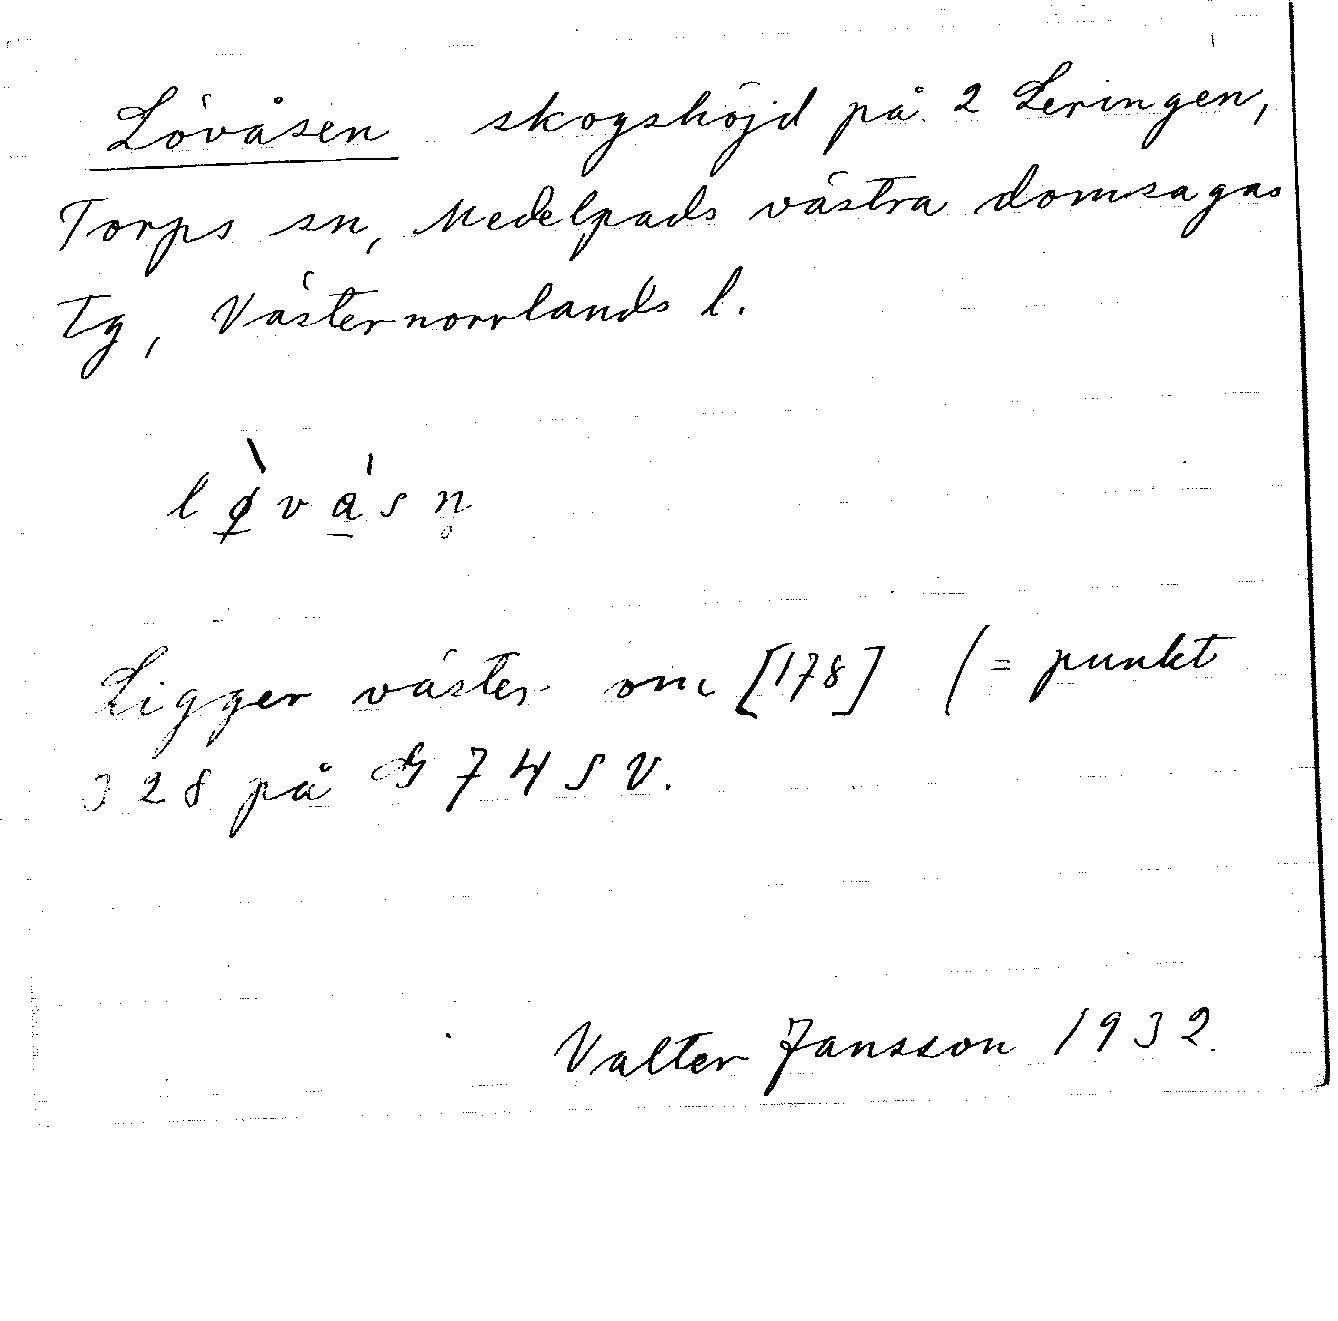 Lövåsen skogshöjd på 2 Leringen,
Torps sn, Medelpads västra domsagas
Tg, Västernorrlands l.
lø̱̀va̱̍sn̥
Ligger väster om [178] (= punkt
328 på G 74 SV.
Valter Jansson 1932.